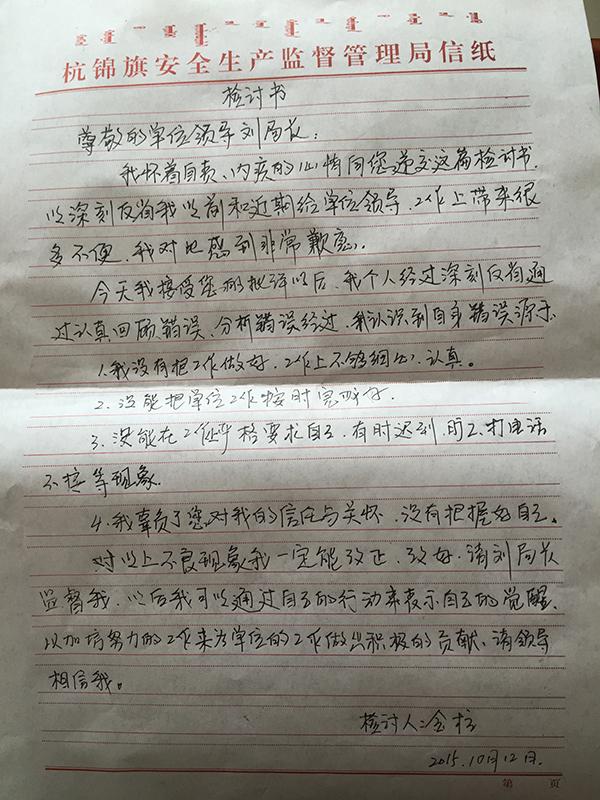 杭锦旗安全生产监督管理局信纸
检讨书
尊敬的单位领导刘局长:
我怀着自责、内疚的心情向您递交这篇检讨书.
以深刻反省我以前和近期给单位领导、工作上带来很
多不便、我对此感到非常歉意、
今天我接受您的批评以后、我个人经过深刻反省通
过认真回顾错误、分析错误经过、我认识到自身错误源于、
1.我没有把工作做好、工作上不够细心、认真。
2、没能把单位工作按时完成好.
3、没能在工作中严格要求自己、有时迟到、旷工、打电话
不接等现象.
4.我辜负了您对我的信任与关怀、没有把握好自己、
对以上不良现象我一定能改正、改好、请刘局长
监督我、以后我可以通过自己的行动来表示自己的觉醒、
以加倍努力的工作来为单位的工作做出积极的贡献、请领导
相信我。
检讨人:金柱
2015.10月12日.
第 页